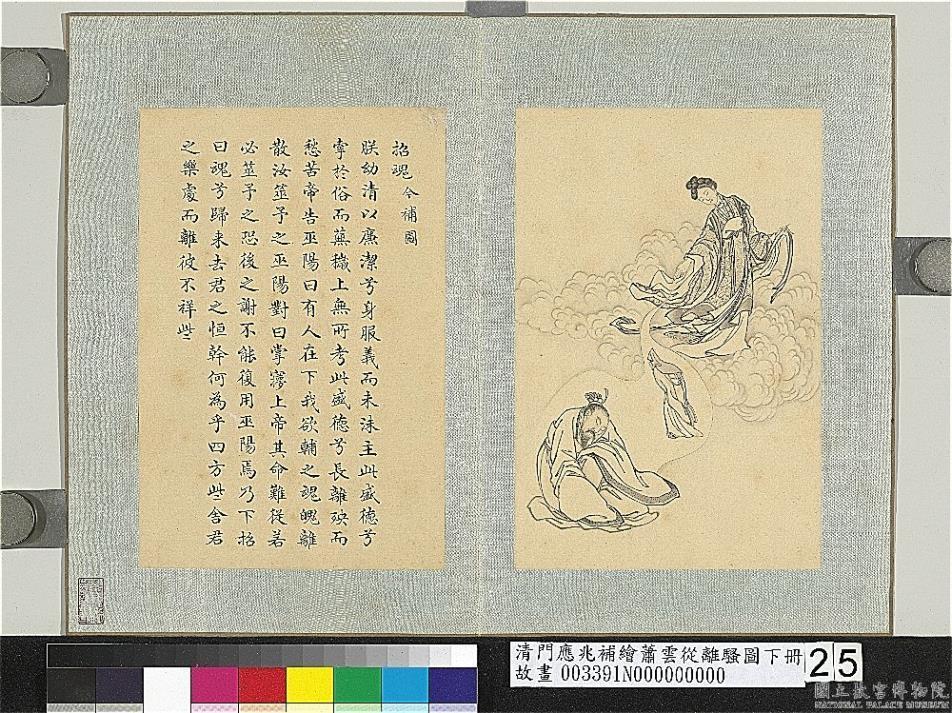 招魂 今補圖
朕幼清以廉潔兮身服義而未沬主此盛德兮
牽於俗而蕪穢上無所考此盛德兮長離殃而
愁苦帝告巫陽曰有人在下我欲輔之魂魄離
散汝筮予之巫陽對曰掌㝱上帝其命難從若
必筮予之恐後之謝不能復用巫陽焉乃下招
曰魂兮歸来去君之恒幹何為乎四方些舍君
之樂處而離彼不祥些
清門應兆補繪蕭雲從離騷圖下册
故畫 003391N000000000
25
國立故宮博物院
NATIONAL PALACE MUSEUM